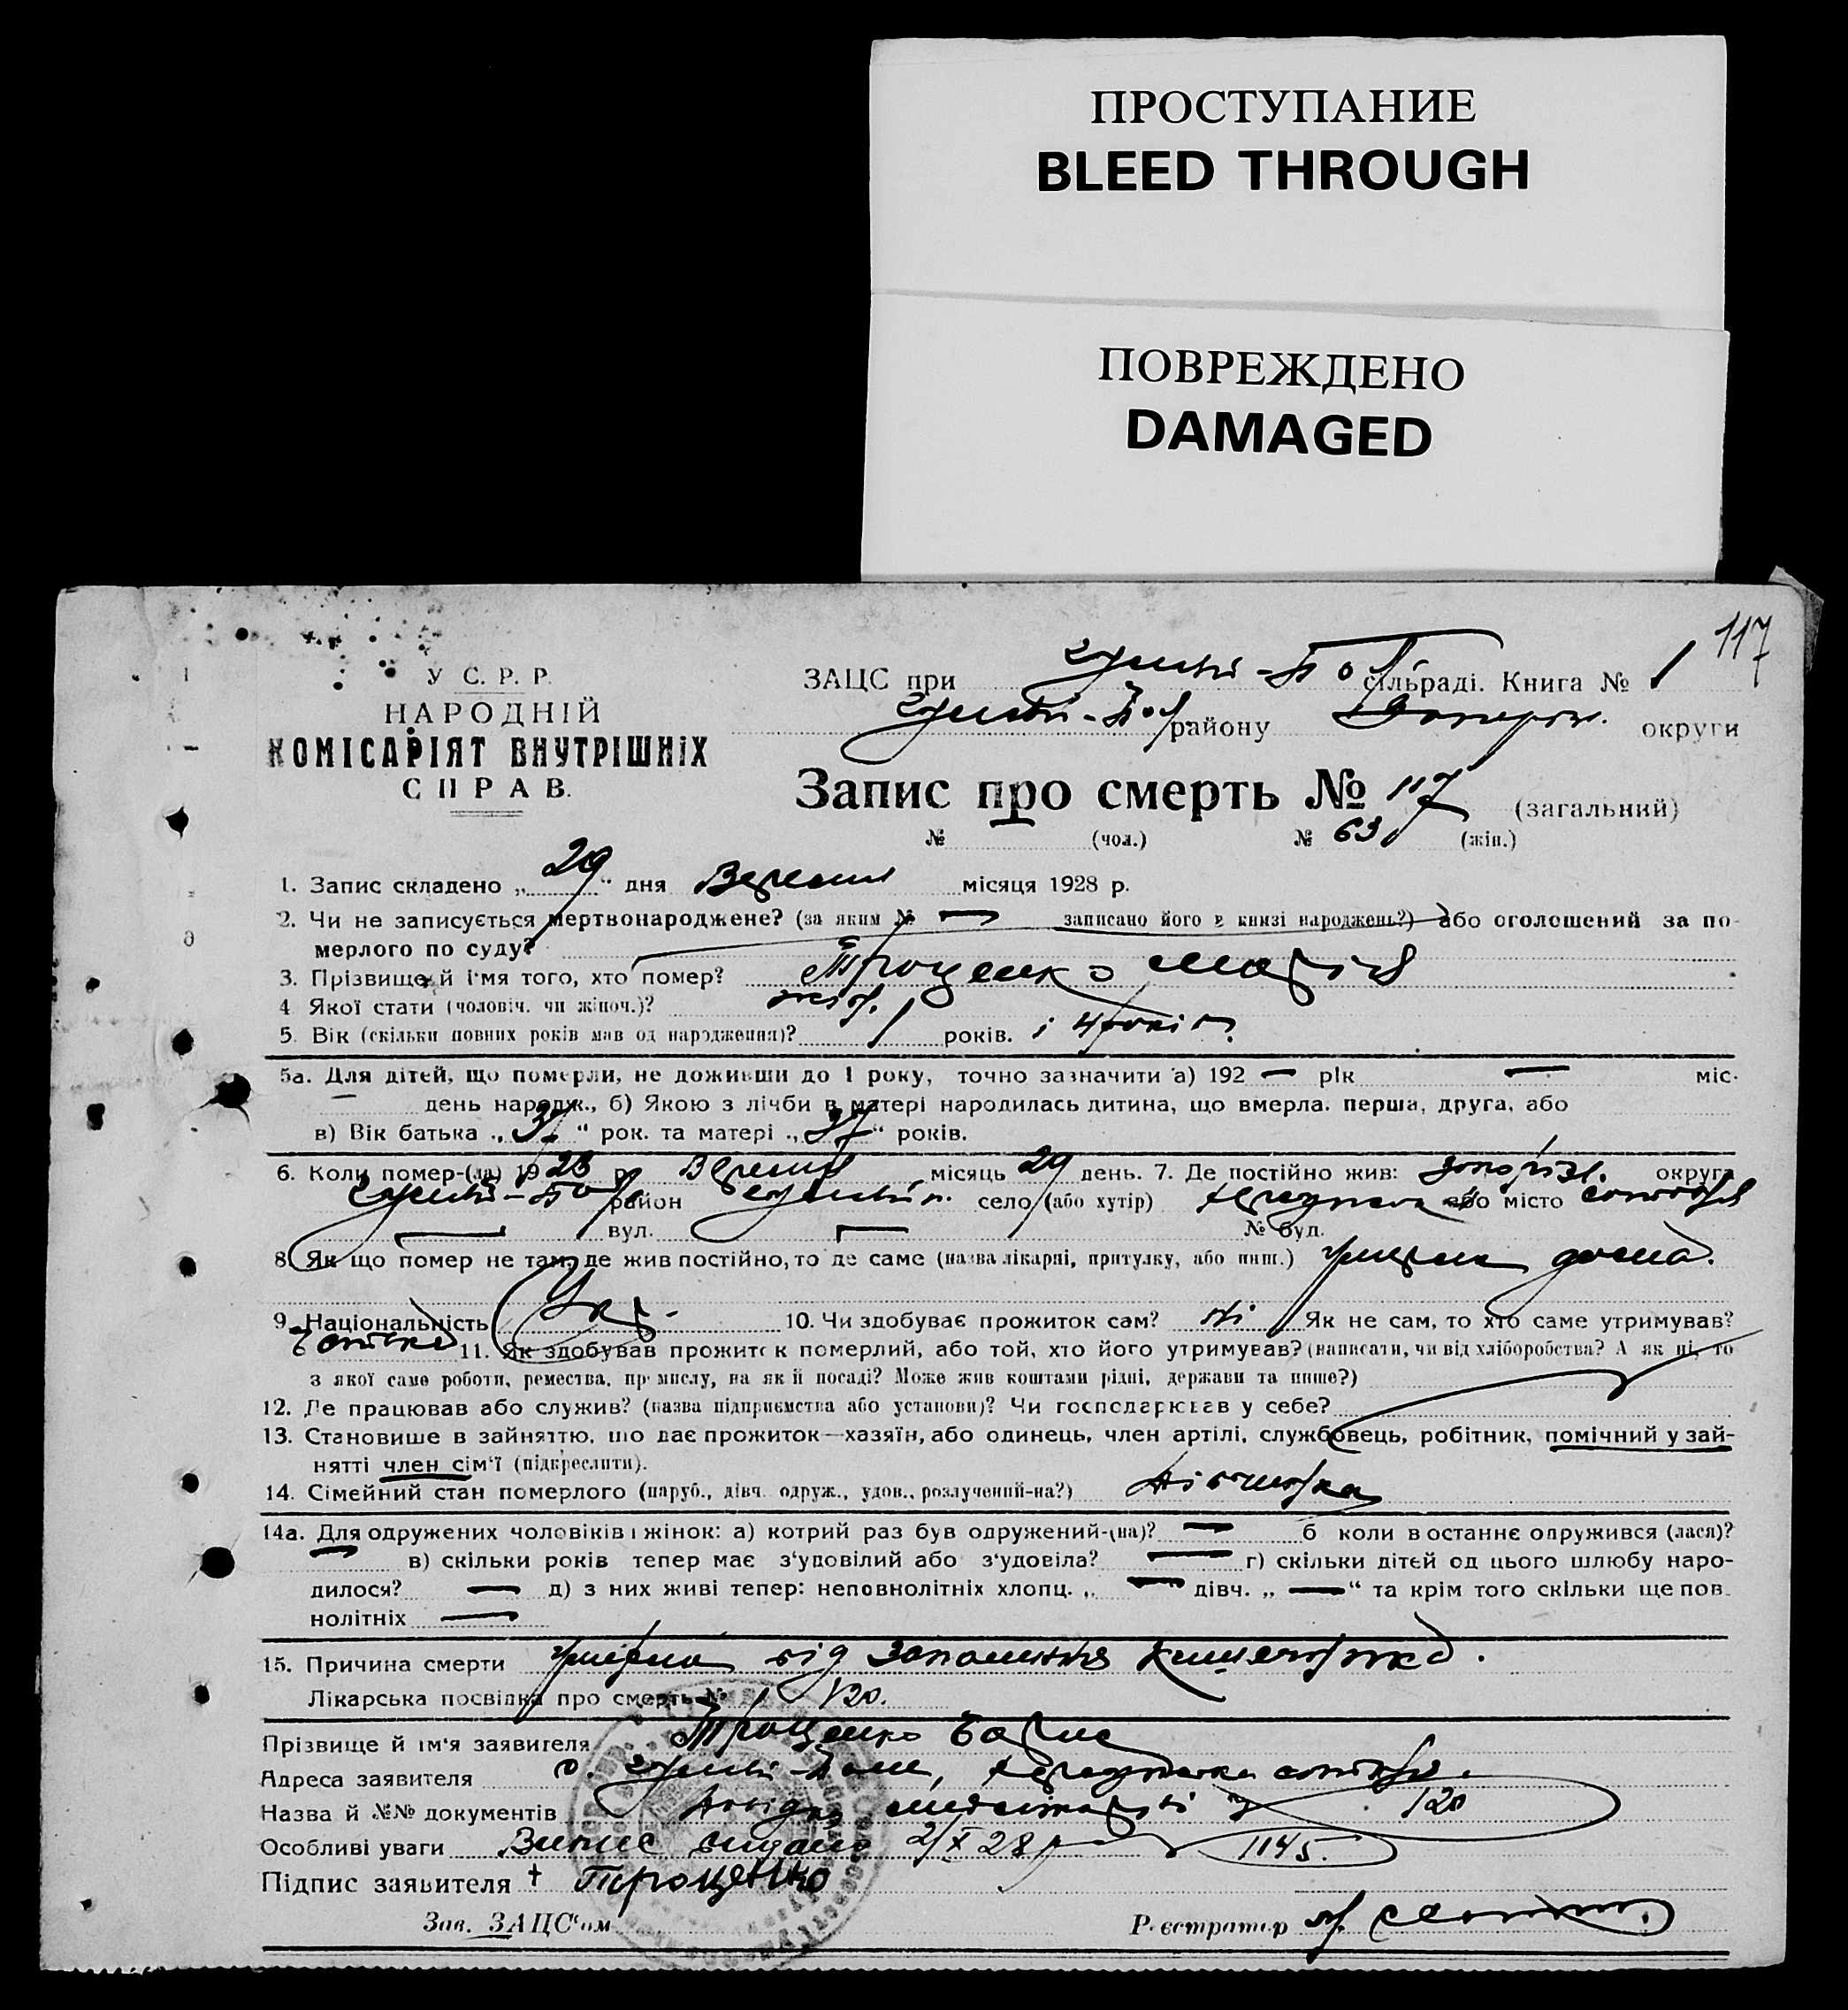 ПРОСТУПАНИЕ
BLEED THROUGH
ПОВРЕЖДЕНО
DAMAGED
117
У С. Р. Р.
НАРОДНІЙ
КОМІСАРІЯТ ВНУТРІШНІХ
СПРАВ.
ЗАЦС при Гуляй-Пол сільраді. Книга № 1
Гуляй-Пол району округи
Запис про смерть № 117 (загальний)
№ — (чол.) № 63 (жін.)
1. Запис складено „29“ дня Вересня місяця 1928 р.
2. Чи не записується мертвонароджене? (за яким № — записано його в книзі народжень?) або оголошений за по-
мерлого по суду?
3. Прізвище й ім'я того, хто помер? Троценко Марія
4 Якої стати (чоловіч. чи жіноч.)? жін.
5. Вік (скільки повних років мав од народження)? 1 років. і
5а. Для дітей, що померли, не доживши до 1 року, точно зазначити а) 192 — рік — міс.
— день народж., б) Якою з лічби в матері народилась дитина, що вмерла: перша, друга, або
в) Вік батька „37“ рок. та матері „37“ років.
6. Коли помер-(ла) 1928 р. Вересня місяць 29 день. 7. Де постійно жив: Запоріж. округа
Гуляй-Пол район село (або хутір) або місто
— вул. — № буд.
8. Як що помер не там, де жив постійно, то де саме (назва лікарні, притулку, або инш.) умерла дома.
9. Національність Укр. 10. Чи здобуває прожиток сам? ні Як не сам, то хто саме утримував?
батько 11. Як здобував прожиток померлий, або той, хто його утримував? (написати, чи від хліборобства? А як ні, то
з якої саме роботи, ремества, промислу, на якій посаді? Може жив коштами рідні, держави та инше?)
12. Де працював або служив? (назва підприємства або установи)? Чи господарював у себе?
13. Становище в зайняттю, що дає прожиток—хазяїн, або одинець, член артілі, службовець, робітник, помічний у зай-
нятті член сім'ї (підкреслити).
14. Сімейний стан померлого (паруб., дівч. одруж., удов., розлучений-на?) дівчинка
14а. Для одружених чоловіків і жінок: а) котрий раз був одружений-(на)? — б коли востаннє одружився (лася)?
— в) скільки років тепер має з'удовілий або з'удовіла? — г) скільки дітей од цього шлюбу наро-
дилося? — д) з них живі тепер: неповнолітніх хлопц. „—“ дівч. „—“ та крім того скільки ще пов-
нолітніх —
15. Причина смерти умерла від запалення
Лікарська посвідка про смерть № 120.
Прізвище й ім'я заявителя Троценко Борис
Адреса заявителя с. Гуляй-Поле,
Назва й №№ документів Довідка 120
Особливі уваги Випис видано 2/X 28 р 1145.
Підпис заявителя + Троценко
Зав. ЗАЦС'ом
Реєстратор